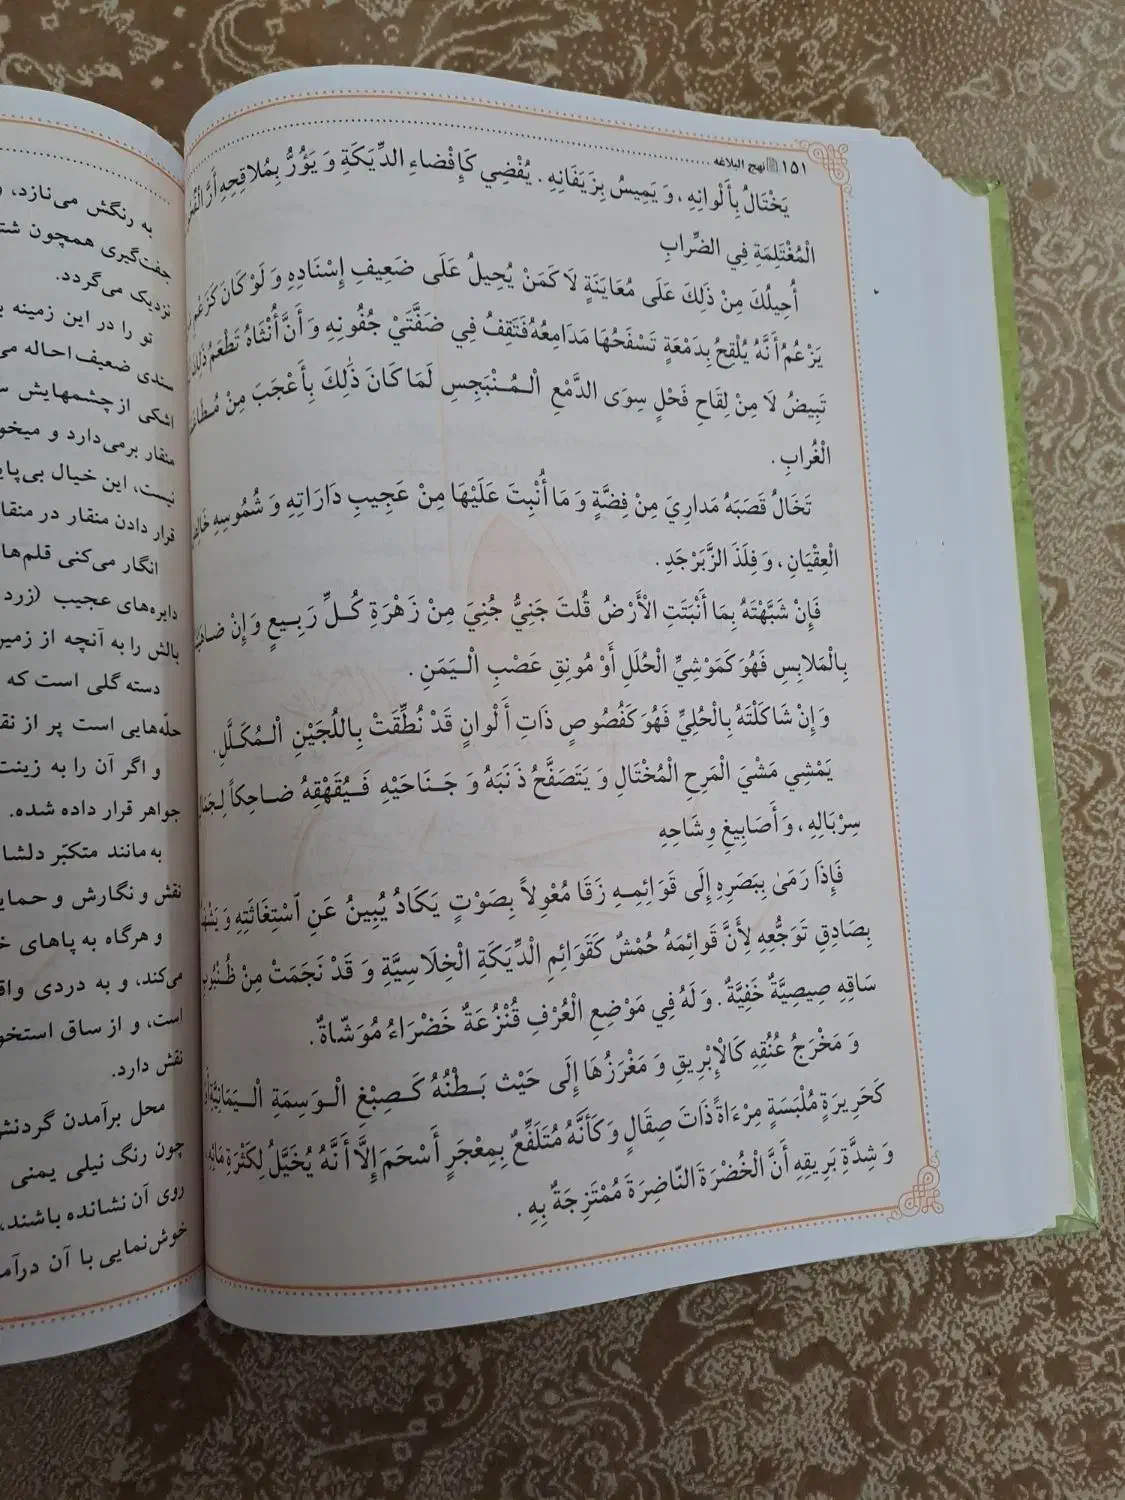 ۱۵۱ نهج البلاغه
يَخْتَالُ بِأَلْوَانِهِ ، وَ يَمِيسُ بِزَيَفَانِهِ . يُفْضِي كَإِفْضاءِ الدِّيَكَةِ وَ يَؤُرُّ بِمُلاقِحِهِ أَرَّ
الْمُغْتَلِمَةِ فِي الضِّرابِ
أُحِيلُكَ مِنْ ذَلِكَ عَلَى مُعَايَنَةٍ لاَ كَمَنْ يُحِيلُ عَلَى ضَعِيفٍ إِسْنَادِهِ وَ لَوْ كَانَ كَزَعْمِ
يَزْعُمُ أَنَّهُ يُلْقِحُ بِدَمْعَةٍ تَسْفَحُهَا مَدَامِعُهُ فَتَقِفُ فِي ضَفَّتَيْ جُفُونِهِ وَ أَنَّ أُنْثَاهُ تَطْعَمُ ذَلِكَ
تَبِيضُ لاَ مِنْ لِقَاحِ فَحْلٍ سِوَى الدَّمْعِ الْمُنْبَجِسِ لَمَا كَانَ ذَلِكَ بِأَعْجَبَ مِنْ
الْغُرابِ .
تَخَالُ قَصَبَهُ مَدارِيَ مِنْ فِضَّةٍ وَ مَا أُنْبِتَ عَلَيْهَا مِنْ عَجِيبِ دَارَاتِهِ وَ شُمُوسِهِ
الْعِقْيَانِ ، وَ فِلَذَ الزَّبَرْجَدِ .
فَإِنْ شَبَّهْتَهُ بِمَا أَنْبَتَتِ الْأَرْضُ قُلتَ جَنِيٌّ جُنِيَ مِنْ زَهْرَةِ كُلِّ رَبِيعٍ وَ إِنْ
بِالْمَلابِسِ فَهُوَ كَمَوْشِيِّ الْحُلَلِ أَوْ مُونِقِ عَصْبِ الْيَمَنِ .
وَ إِنْ شَاكَلْتَهُ بِالْحُلِيِّ فَهُوَ كَفُصُوصٍ ذَاتِ أَلْوانٍ قَدْ نُطِّقَتْ بِاللُجَيْنِ الْمُكَلَّلِ .
يَمْشِي مَشْيَ الْمَرِحِ الْمُخْتَالِ وَ يَتَصَفَّحُ ذَنَبَهُ وَ جَنَاحَيْهِ فَيُقَهْقِهُ ضاحِكاً لِجَمَالِ
سِرْبَالِهِ ، وَ أَصَابِيغِ وِشَاحِهِ
فَإِذَا رَمَىٰ بِبَصَرِهِ إِلَى قَوَائِمِهِ زَقَا مُعْوِلاً بِصَوْتٍ يَكَادُ يُبِينُ عَنِ اسْتِغَاثَتِهِ وَ
بِصَادِقِ تَوَجُّعِهِ لِأَنَّ قَوائِمَهُ حُمْشٌ كَقَوَائِمِ الْدِّيَكَةِ الْخِلَاسِيَّةِ وَ قَدْ نَجَمَتْ مِنْ
سَاقِهِ صِيصِيَّةٌ خَفِيَّةٌ . وَ لَهُ فِي مَوْضِعِ الْعُرْفِ قُنْزُعَةٌ خَضْرَاءُ مُوَشّاةٌ .
وَ مَخْرَجُ عُنُقِهِ كَالْإِبْرِيقِ وَ مَغْرَزُهَا إِلَى حَيْثُ بَطْنُهُ كَصِبْغِ الْوَسِمَةِ الْيَمَانِيَّةِ
كَحَرِيرَةٍ مُلْبَسَةٍ مِرْءَاةً ذَاتَ صِقَالٍ وَ كَأَنَّهُ مُتَلَفِّعٌ بِمِعْجَرٍ أَسْحَمَ إِلَّا أَنَّهُ يُخَيَّلُ لِكَثْرَةِ مَائِهِ
وَ شِدَّةِ بَرِيقِهِ أَنَّ الْخُضْرَةَ النّاضِرَةَ مُمْتَزِجَةٌ بِهِ .
به رنگش می‌نازد، و
جفت‌گیری همچون
نزدیک می‌گردد.
تو را در این زمینه
سندی ضعیف احاله
اشکی از چشمهایش
منقار برمی‌دارد و
نیست، این خیال
قرار دادن منقار در
انگار می‌کنی
دایره‌های عجیب (زرد
بالش را به آنچه از
دسته گلی است که
حلّه‌هایی است پر از
و اگر آن را به
جواهر قرار داده شده.
به مانند متکبّر
نقش و نگارش و
و هرگاه به پاهای
می‌کند، و به دردی
است، و از ساق
نقش دارد.
محل برآمدن
چون رنگ نیلی یمنی
روی آن نشانده باشند،
خوش‌نمایی با آن